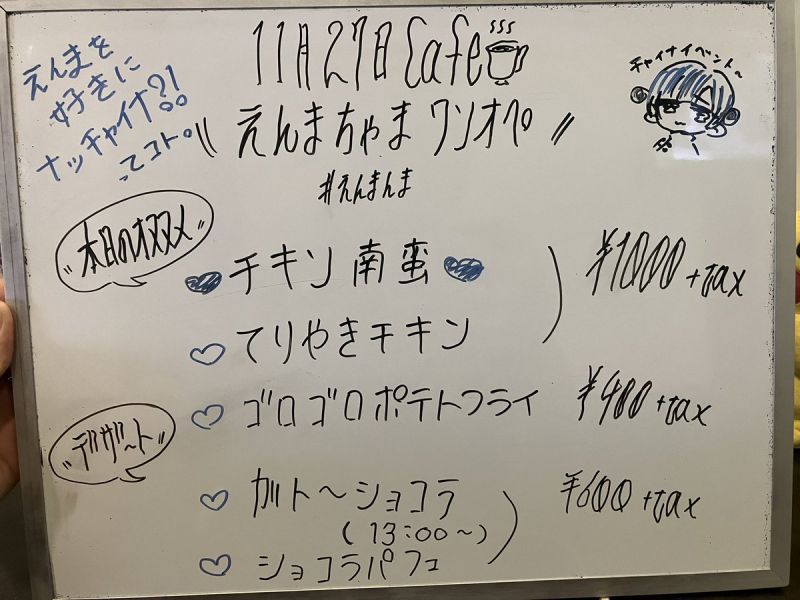 11月27日 Cafe
えんまを
好きに
ナッチャイナ?!
ってコト。
えんまちゃま ワンオペ
#えんまんま
チャイナイベント〜
本日のオススメ
チキン南蛮
¥1000+tax
てりやきチキン
ゴロゴロポテトフライ ¥400+tax
デザ〜ト
ガト〜ショコラ ¥600+tax
(13:00〜)
ショコラパフェ